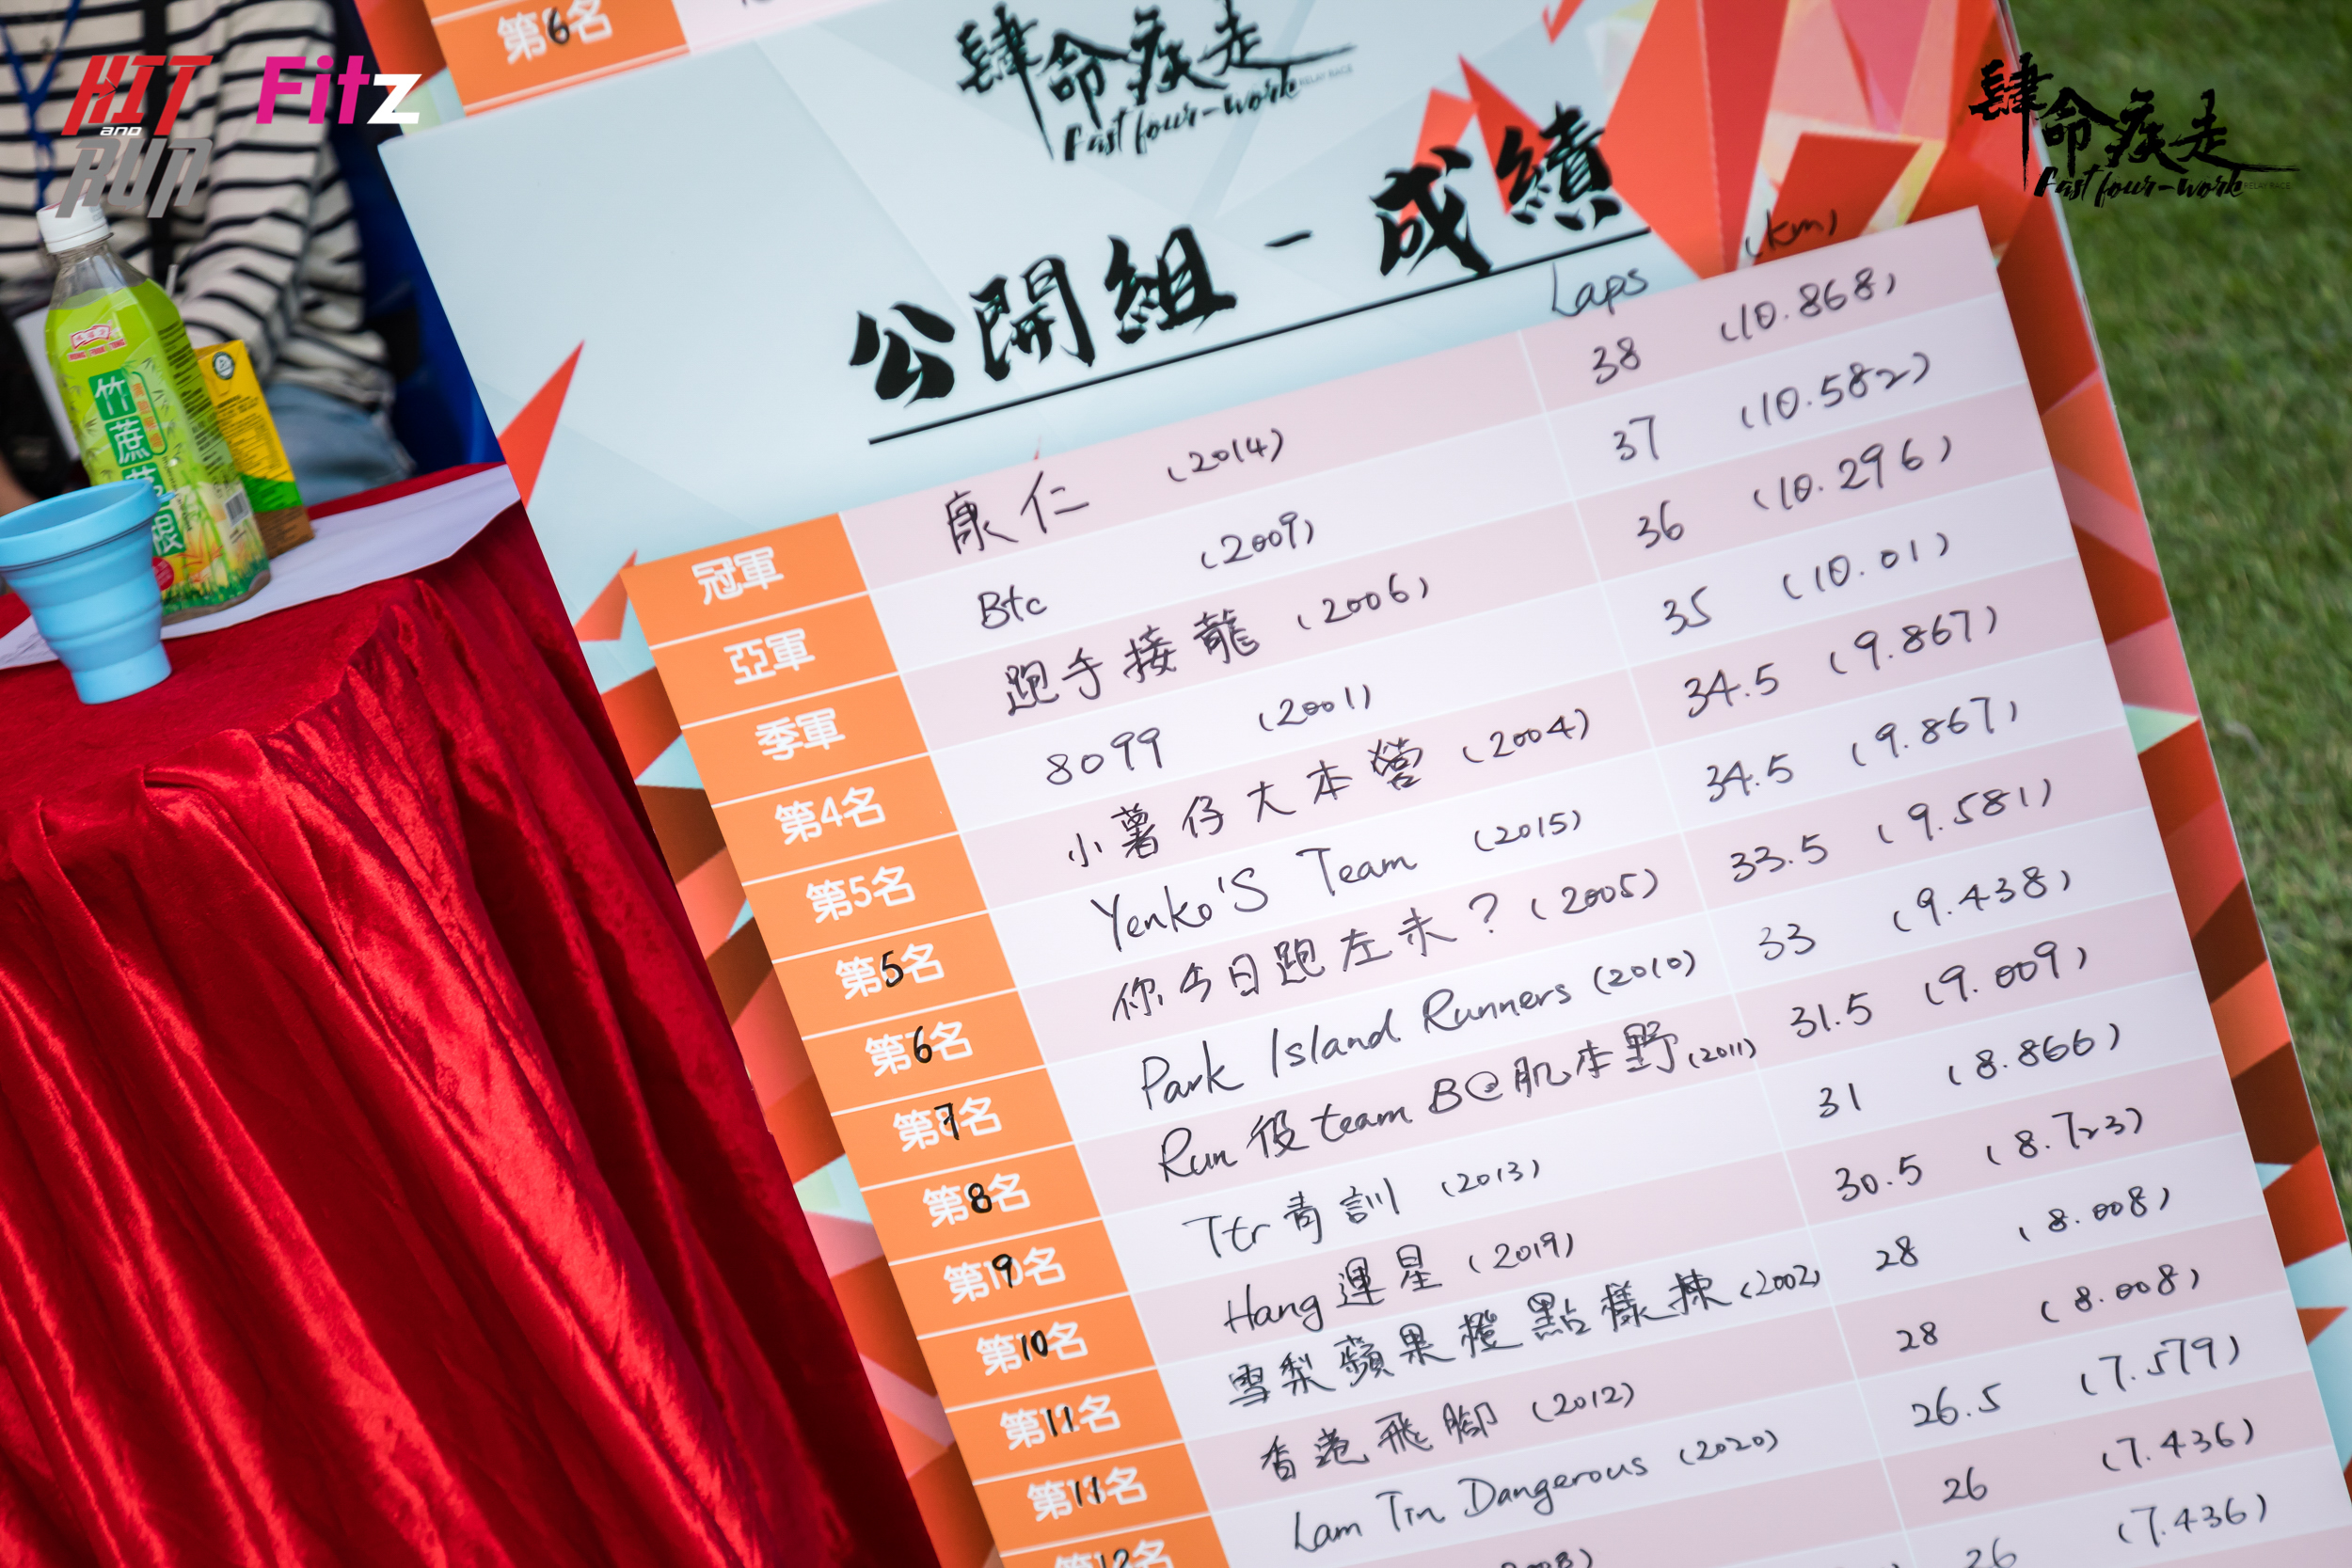 第6名
HIT
AND
RUN
Fitz
肆命疾走
Fast four-work RELAY RACE
肆命疾走
Fast four-work RELAY RACE
公開組 - 成績
Laps (km)
冠軍 康仁 (2014) 38 (10.868)
亞軍 Btc (2009) 37 (10.582)
季軍 跑手接龍 (2006) 36 (10.296)
第4名 8099 (2001) 35 (10.01)
第5名 小薯仔大本營 (2004) 34.5 (9.867)
第5名 Yenko'S Team (2015) 34.5 (9.867)
第6名 你今日跑左未? (2005) 33.5 (9.581)
第7名 Park Island Runners (2010) 33 (9.438)
第8名 Run役team B@肌本野 (2011) 31.5 (9.009)
第9名 Ttr青訓 (2013) 31 (8.866)
第10名 Hang運星 (2019) 30.5 (8.723)
第11名 雪梨蘋果橙點樣揀 (2002) 28 (8.008)
第11名 香港飛腳 (2012) 28 (8.008)
第12名 Lam Tin Dangerous (2020) 26.5 (7.579)
26 (7.436)
26 (7.436)
HUNG FOOK TONG
竹蔗茅根